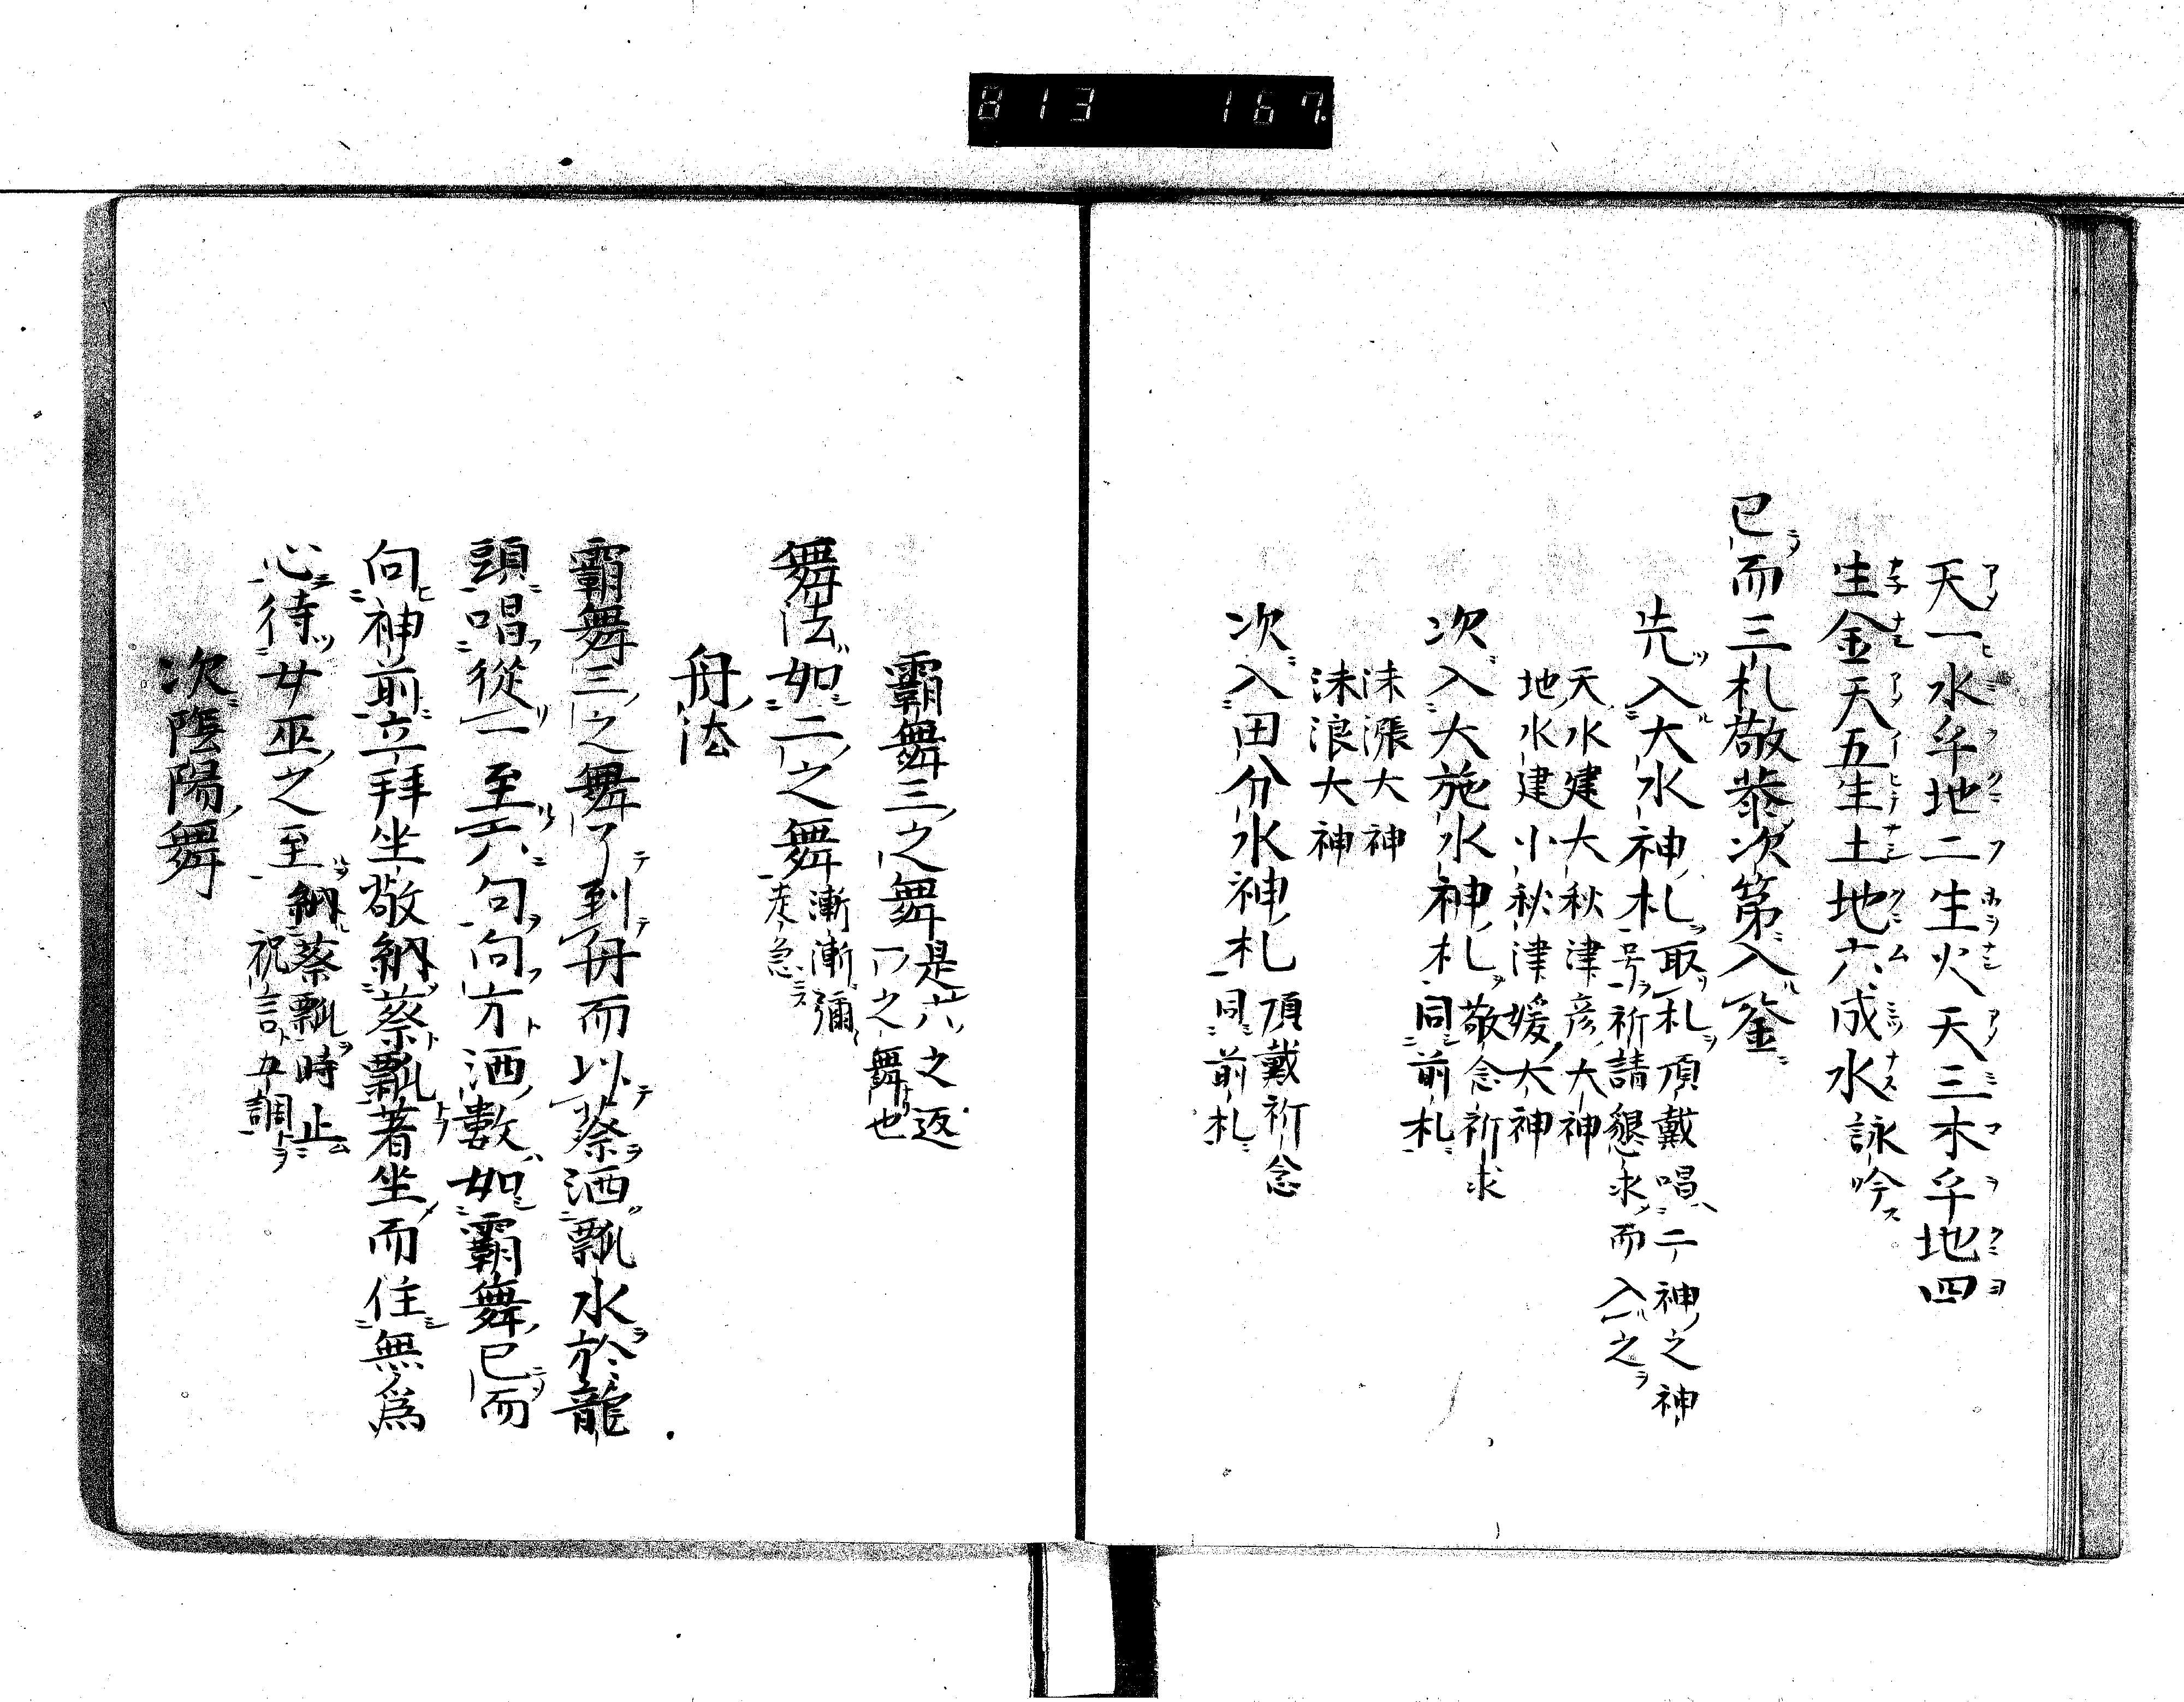 813 167.
天一水乎地二生火天三木乎地四
生金天五生土地六成水詠吟
已而三札敬恭次第入釜
先入大水神札取札頂戴唱二神之神
号祈請懇求而入之
天水建大秋津彦大神
地水建小秋津媛大神
次入大施水神札敬念祈求
同前札
沫漲大神
沫浪大神
次入田分水神札頂戴祈念
同前札
覇舞三之舞是六之返
之舞也
舞法如二之舞漸漸彌
走急
舟法
覇舞三之舞了到舟而以蔡洒瓢水於龍
頭唱從一至六句向方洒數如覇舞已而
向神前立拜坐敬納蔡瓢著坐而住無爲
心待女巫之至納蔡瓢時止
祝言五調
次陰陽舞